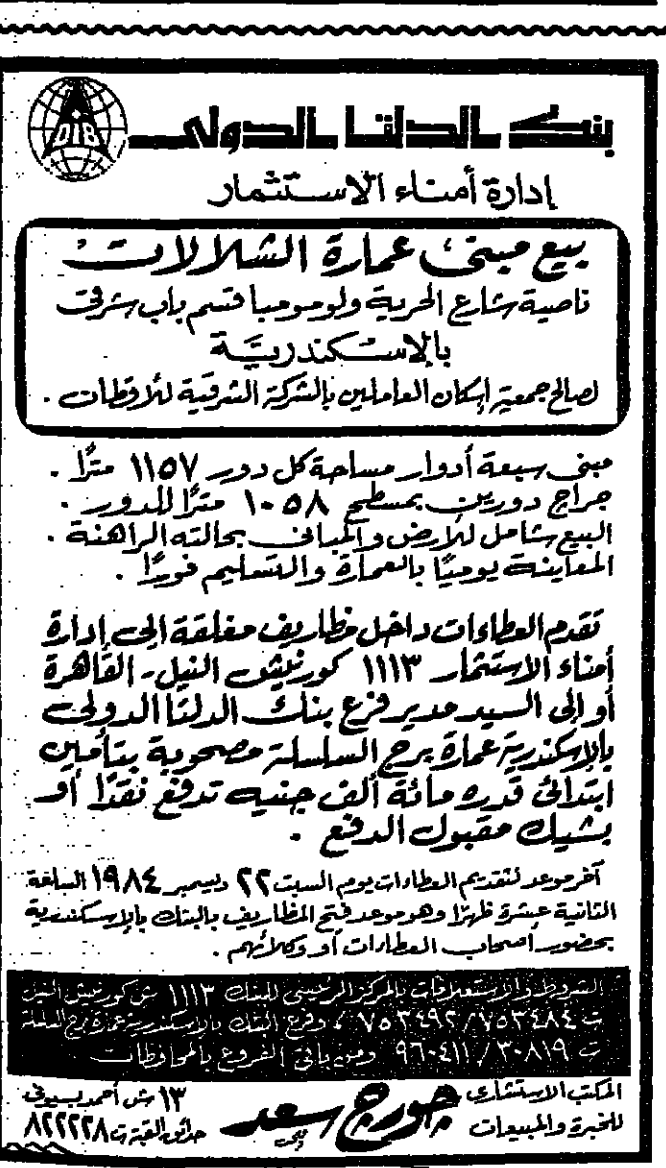 DIB
بنك الدلتا الدولى
إدارة أمناء الاستثمار
بيع مبنى عمارة الشلالات
ناصية شارع الحرية ولومومبا قسم باب شرقى
بالإسكندرية
لصالح جمعية إسكان العاملين بالشركة الشرقية للأقطان .
مبنى سبعة أدوار مساحة كل دور ١١٥٧ مترًا .
جراج دورين بمسطح ١٠٥٨ مترًا للدور .
البيع شامل للأرض والمبانى بحالته الراهنة .
المعاينة يوميًا بالعمارة والتسليم فورًا .
تقدم العطاءات داخل مظاريف مغلقة إلى إدارة
أمناء الاستثمار ١١١٣ كورنيش النيل - القاهرة
أو إلى السيد مدير فرع بنك الدلتا الدولى
بالإسكندرية عمارة برج السلسلة مصحوبة بتأمين
ابتدائى قدره مائة ألف جنيه تدفع نقدًا أو
بشيك مقبول الدفع .
آخر موعد لتقديم العطاءات يوم السبت ٢٢ ديسمبر ١٩٨٤ الساعة
الثانية عشرة ظهرًا وهو موعد فتح المظاريف بالبنك بالإسكندرية
بحضور أصحاب العطاءات أو وكلائهم .
الشروط والاستعلامات بالمركز الرئيسى للبنك ١١١٣ ش كورنيش النيل
ت ٧٥٣٤٨٤ / ٧٥٣٤٩٢ ، وفرع البنك بالإسكندرية عمارة برج السلسلة
ت ٣٠٨١٩ / ٩٦٠٤١١ ومن باقى الفروع بالمحافظات
المكتب الاستشارى
للخبرة والمبيعات
جورج سعد
١٣ ش أحمد بسيونى
حدائق القبة ت ٨٢٢٢٢٨